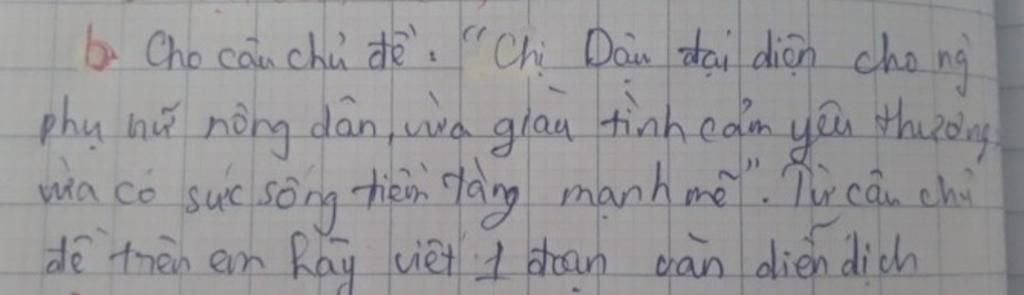 b. Cho câu chủ đề: "Chị Dậu đại diện cho ng
phụ nữ nông dân, vừa giàu tình cảm yêu thương
vừa có sức sống tiềm tàng mạnh mẽ". Từ câu chủ
đề trên em hãy viết 1 đoạn văn diễn dịch